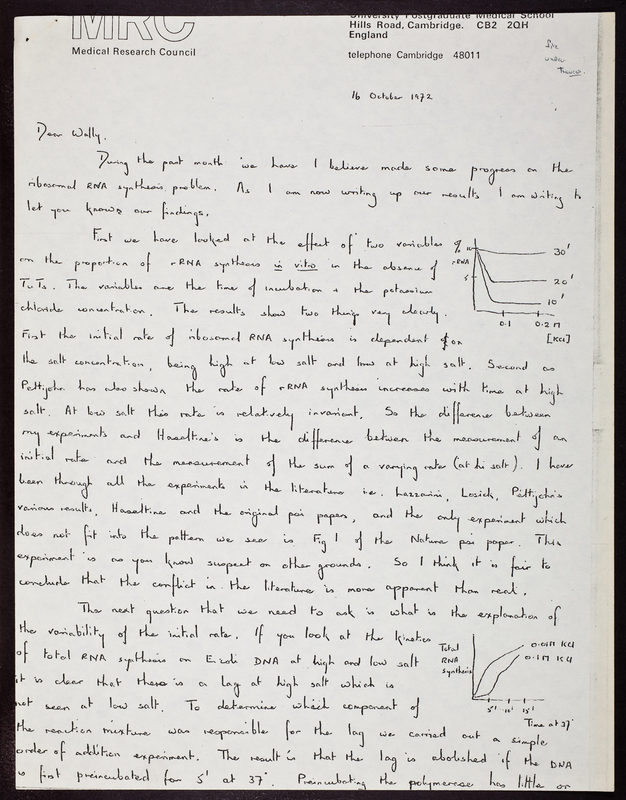 MRC
Medical Research Council
University Postgraduate Medical School
Hills Road, Cambridge. CB2 2QH
England
telephone Cambridge 48011
file
under
Travers.
16 October 1972
Dear Wally,
During the past month we have I believe made some progress on the
ribosomal RNA synthesis problem. As I am now writing up our results I am writing to
let you know our findings.
First we have looked at the effect of two variables
on the proportion of rRNA synthesis in vitro in the absence of
TuTs. The variables are the time of incubation + the potassium
chloride concentration. The results show two things very clearly.
First the initial rate of ribosomal RNA synthesis is dependent on
the salt concentration, being high at low salt and low at high salt. Second as
Pettijohn has also shown the rate of rRNA synthesis increases with time at high
salt. At low salt this rate is relatively invariant. So the difference between
my experiments and Haseltine's is the difference between the measurement of an
initial rate and the measurement of the sum of a varying rate (at hi salt). I have
been through all the experiments in the literature i.e. Lazzarini, Losick, Pettijohn's
various results, Haseltine and the original psi papers, and the only experiment which
does not fit into the pattern we see is Fig 1 of the Nature psi paper. This
experiment is as you know suspect on other grounds. So I think it is fair to
conclude that the conflict in the literature is more apparent than real.
%
rRNA
10
5
30'
20'
10'
0.1 0.2 M
[KCl]
The next question that we need to ask is what is the explanation of
the variability of the initial rate. If you look at the kinetics
of total RNA synthesis on E.coli DNA at high and low salt
it is clear that there is a lag at high salt which is
not seen at low salt. To determine which component of
the reaction mixture was responsible for the lag we carried out a simple
order of addition experiment. The result is that the lag is abolished if the DNA
is first preincubated for 5' at 37°. Preincubating the polymerase has little or
Total
RNA
synthesis
0.01M KCl
0.1M KCl
5' 10' 15'
Time at 37°